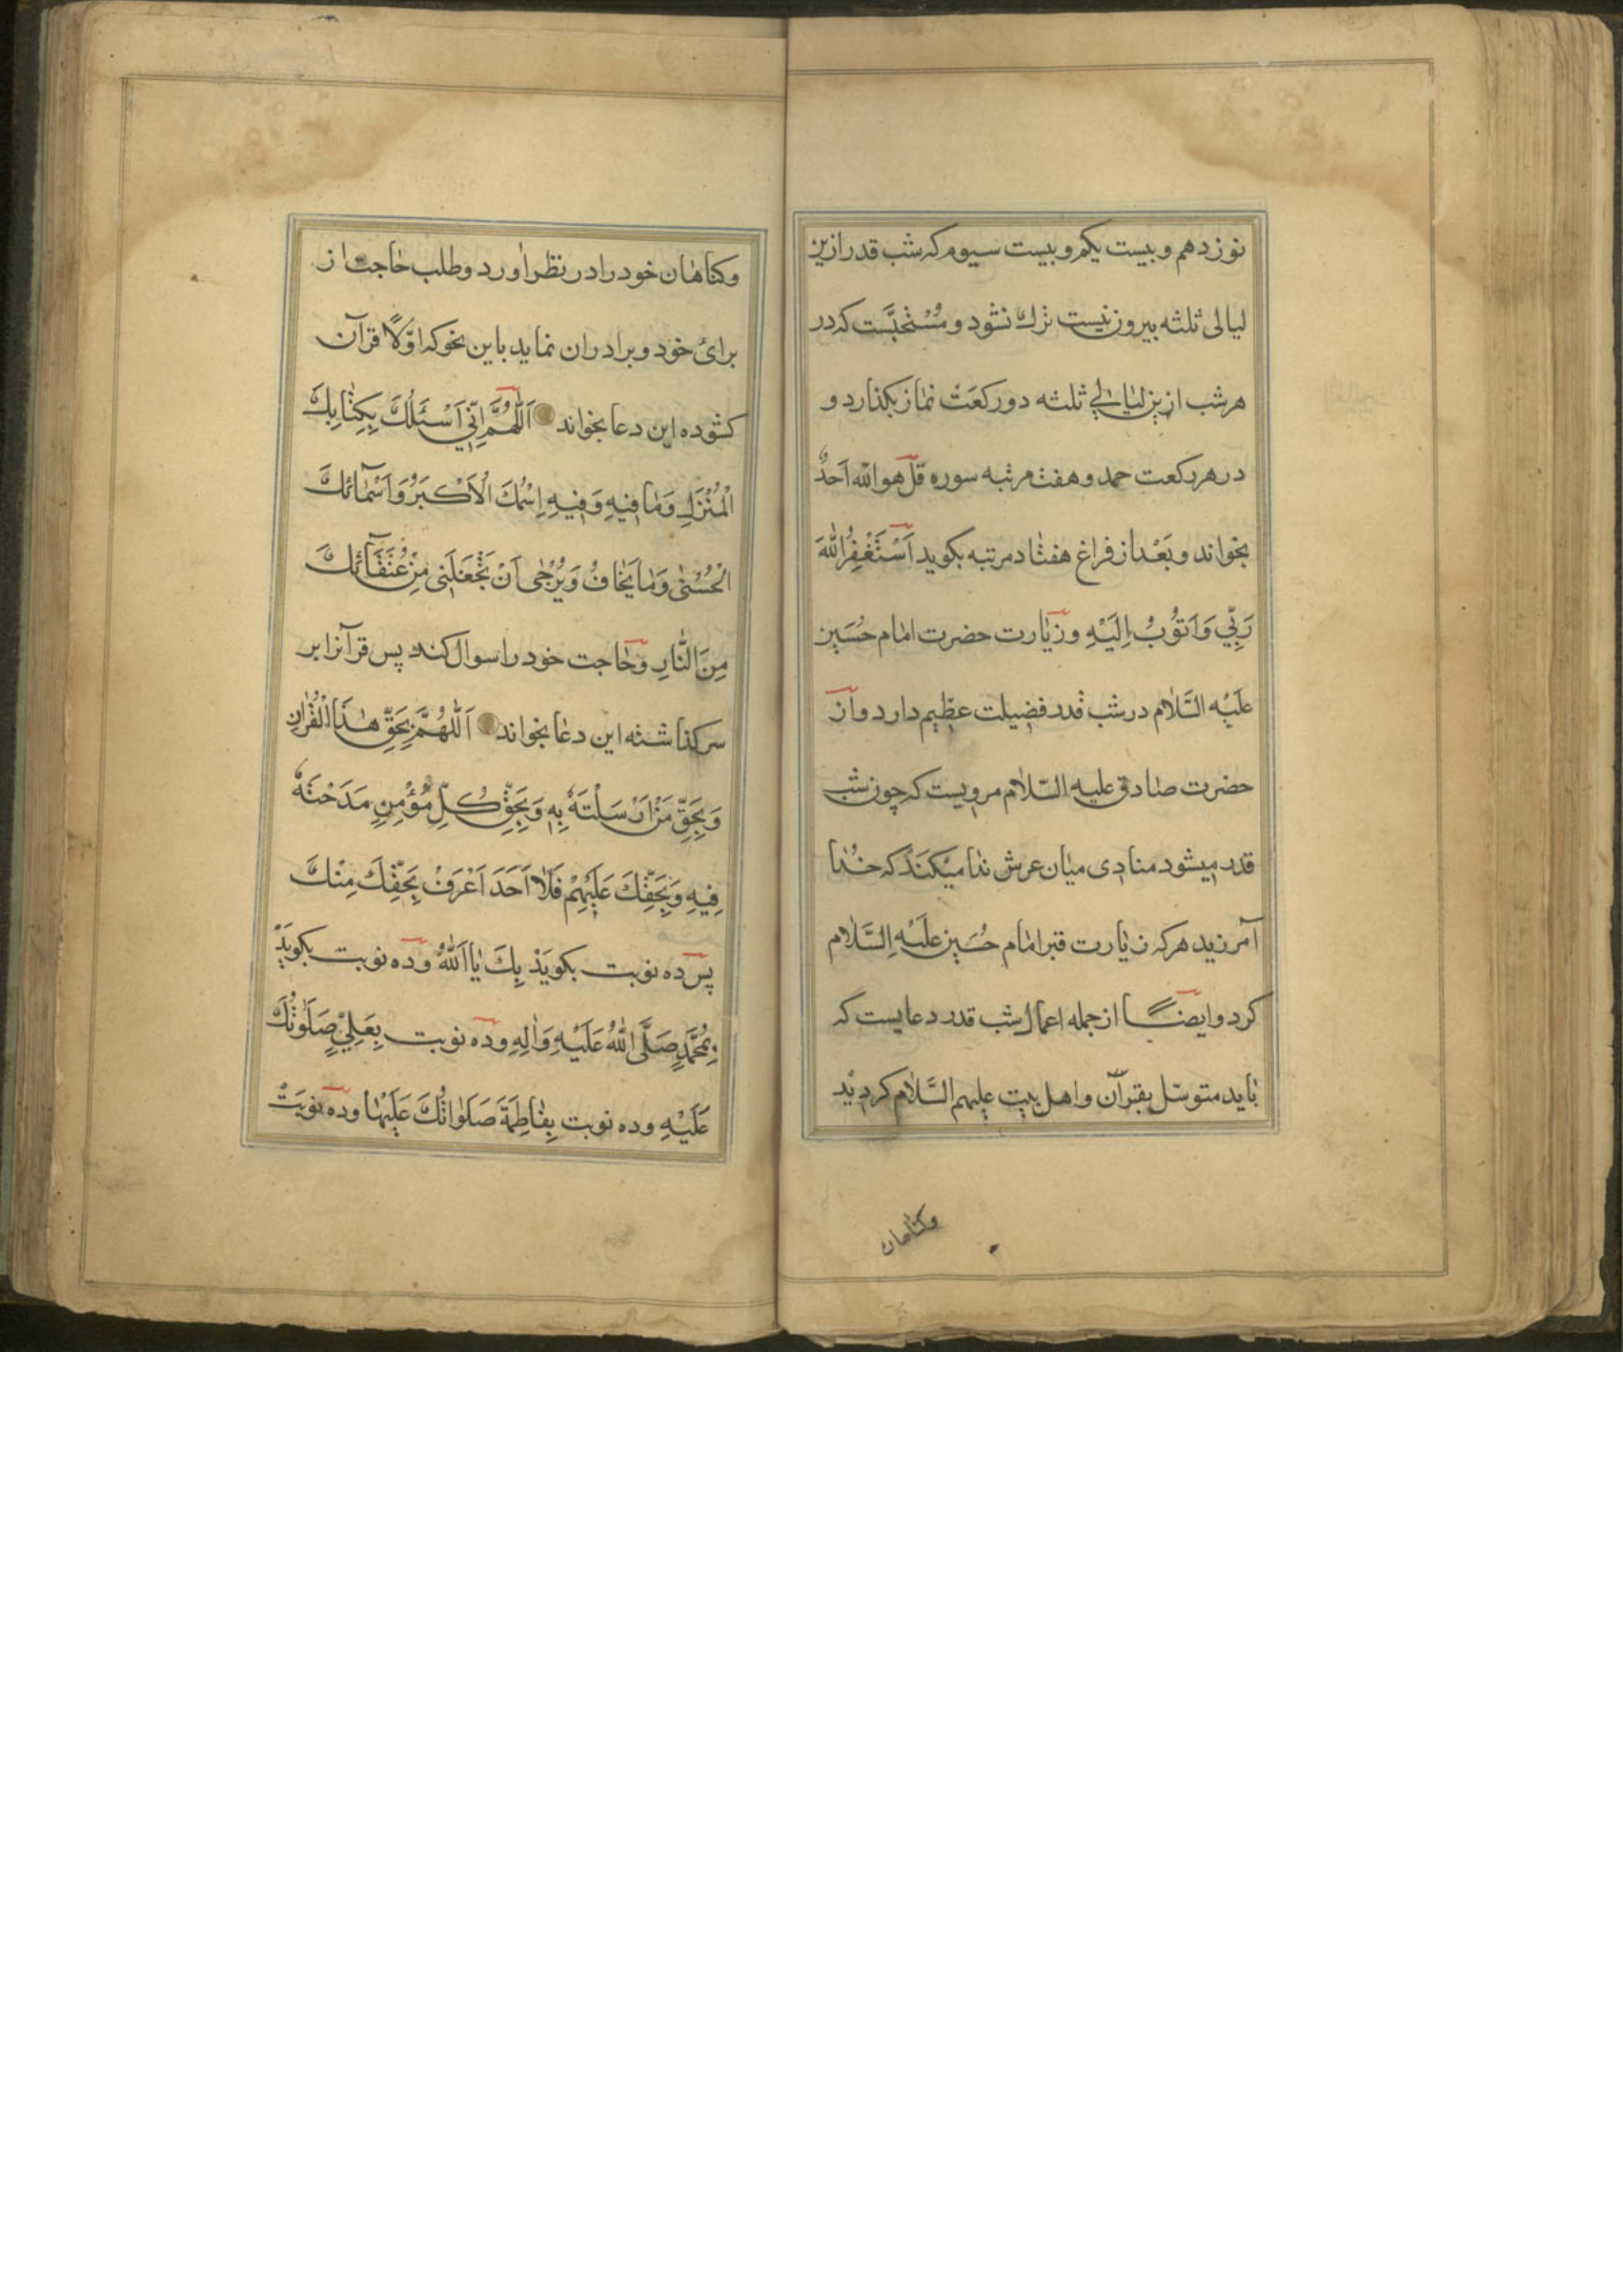 نوزدهم و بیست یکم و بیست سیوم که شب قدر ازین
لیالی ثلثه بیرون نیست ترك نشود و مُسْتحبَّست که در
هر شب ازین لیالی ثلثه دو رکعَتْ نماز بکذارد و
در هر رکعت حمد و هفت مرتبه سوره قل هو الله اَحَدٌ
بخواند و بَعْد از فراغ هفتاد مرتبه بکوید اَسْتَغْفِرُ اللهَ
رَبّي وَ اَتوُبُ اِلَیْهِ و زیارت حضرت امام حُسَین
علَیْه السَّلام در شب قدر فضیلت عظیم دارد و از
حضرت صادق علیه السّلام مرویست که چون شب
قدر میشود منادی میان عرش ندا میکنَدْ که خُدا
آمرزید هر که زیارت قبر امام حُسَین علَیْهِ السَّلام
کرد و ایضا از جمله اعمال شب قدر دعایست که
باید متوسّل بقرآن و اهل بیت علیهم السَّلام کردید
وکناهان
وکناهان خود را در نظر اورد و طلب حاجت از
برائ خود و برادران نماید باین نحو که اوّلاً قرآن
کشوده این دعا بخواند اَللّٰهُمَّ اِنّي اَسْئَلُكَ بِکِتٰابِكَ
الْمُنْزَلِ وَ مٰا فیهِ وَ فیهِ اِسْمُكَ الْاَکْبَرُ وَ اَسْمٰائُكَ
الْحُسْنٰی وَ مٰا یُخٰافُ وَ یُرْجٰی اَنْ تَجْعَلَنی مِنْ عُتَقٰٓائِكَ
مِنَ النّٰارِ و حٰاجت خود را سوال کند پس قرآنرا بر
سر کذاشته این دعا بخواند اَللّٰهُمَّ بِحَقِّ هٰذَا الْقُرْاٰنِ
وَ بِحَقِّ مَنْ اَرْسَلْتَهُ بِهِ وَ بِحَقِّ کُلِّ مُؤْمِنٍ مَدَحْتَهُ
فِیهِ وَ بِحَقِّكَ عَلَیْهِمْ فَلٰا اَحَدَ اَعْرَفُ بِحَقِّكَ مِنْكَ
پس ده نوبت بکویَدْ بِكَ یٰا اَللّٰهُ و ده نوبت بکویَدْ
بِمُحَمَّدٍ صَلَّی اللّٰهُ عَلَیْهِ وَ اٰلِهِ و ده نوبت بِعَلِيٍّ صَلَوٰتُكَ
عَلَیْهِ و ده نوبت بِفٰاطِمَةَ صَلَوٰاتُكَ عَلَیْهٰا و ده نوبَتْ